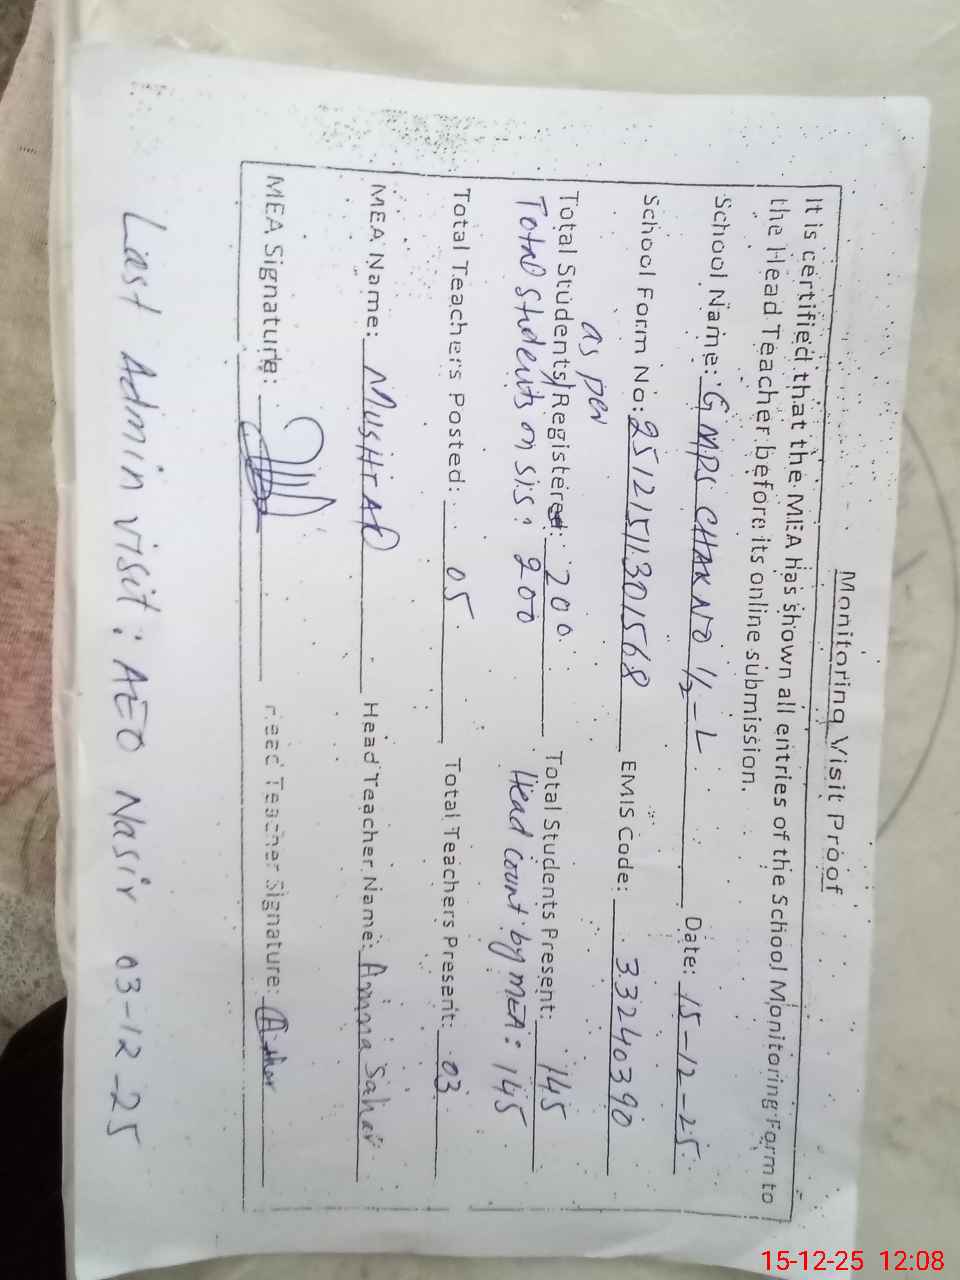 Monitoring Visit Proof
It is certified that the MEA has shown all entries of the School Monitoring Form to
the Head Teacher before its online submission.
School Name: GMPS CHAK NO 1/2-L Date: 15-12-25
School Form No: 25121511301568 EMIS Code: 33240390
as per
Total Students Registered: 200 Total Students Present: 145
Total Students on SIS: 200 Head Count by MEA: 145
Total Teachers Posted: 05 Total Teachers Present: 03
MEA Name: MUSHTAQ Head Teacher Name: Amna Sahar
MEA Signature: Head Teacher Signature:
Last Admin visit: AEO Nasir 03-12-25
15-12-25 12:08